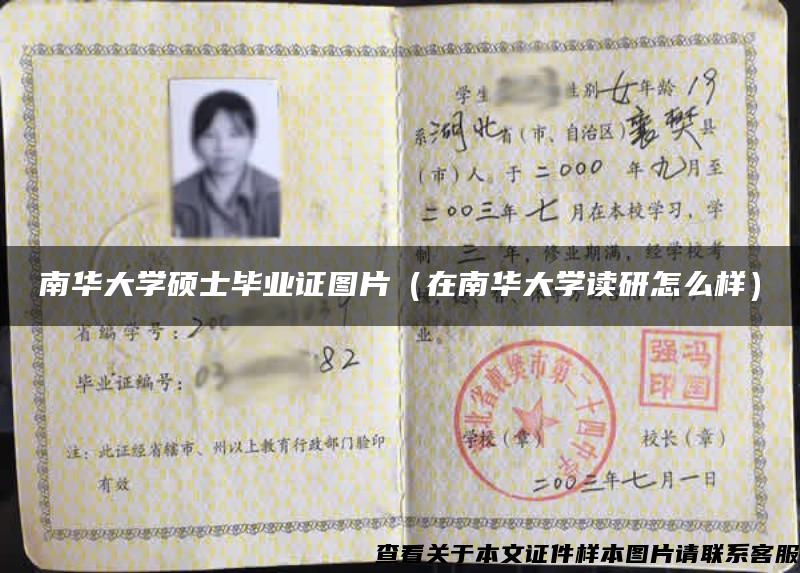 学生 性别女年龄19
系湖北省(市、自治区)襄樊县
(市)人。于二000年九月至
二00三年七月在本校学习,学
制三年,修业期满,经学校考
南华大学硕士毕业证图片(在南华大学读研怎么样)
业。
省编学号:200
毕业证编号:03 82
注:此证经省辖市、州以上教育行政部门验印
有效
冯国强印
北省襄樊市第二十四中学
学校(章) 校长(章)
二00三年七月一日
查看关于本文证件样本图片请联系客服